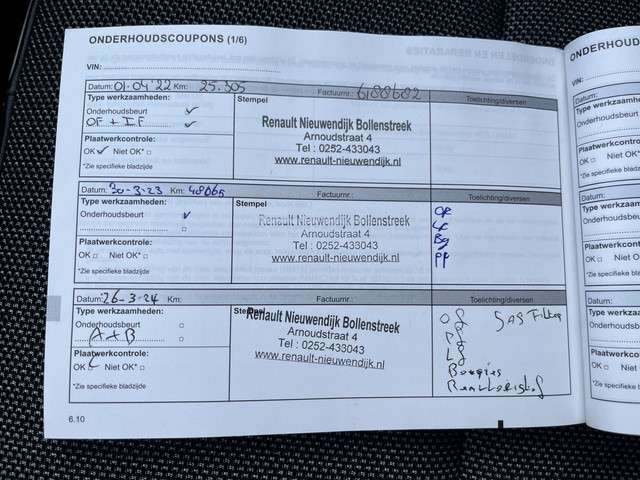 ONDERHOUDSCOUPONS (1/6)
VIN:
Datum: 01-04-'22 Km: 25.305 Factuurnr.: 6188682
Type werkzaamheden:
Onderhoudsbeurt
OF + IF
Plaatwerkcontrole:
OK Niet OK*
*Zie specifieke bladzijde
Stempel
Renault Nieuwendijk Bollenstreek
Arnoudstraat 4
Tel : 0252-433043
www.renault-nieuwendijk.nl
Toelichting/diversen
Datum: 30-3-23 Km: 48065 Factuurnr.:
Type werkzaamheden:
Onderhoudsbeurt
Plaatwerkcontrole:
OK Niet OK*
*Zie specifieke bladzijde
Stempel
Renault Nieuwendijk Bollenstreek
Arnoudstraat 4
Tel : 0252-433043
www.renault-nieuwendijk.nl
Toelichting/diversen
PP
Datum: 26-3-24 Km: Factuurnr.:
Type werkzaamheden:
Onderhoudsbeurt
A+B
Plaatwerkcontrole:
OK Niet OK*
*Zie specifieke bladzijde
Stempel
Renault Nieuwendijk Bollenstreek
Arnoudstraat 4
Tel : 0252-433043
www.renault-nieuwendijk.nl
Toelichting/diversen
Bougies
6.10
ONDERHOUDS
VIN:
Datum:
Type werkzaam
Onderhoudsbeu
Plaatwerkcontr
OK Niet OK*
*Zie specifieke bla
Datum:
Type werkzaa
Onderhoudsbe
Plaatwerkcont
OK Niet OK
*Zie specifieke bl
Datum:
Type werkza
Onderhoudsb
Plaatwerkco
OK Niet O
*Zie specifieke